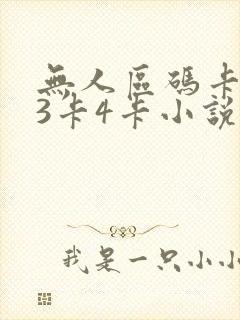 無人區碼卡
3卡4卡小說
我是一只小小